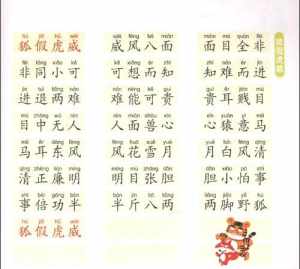 hú jiǎ hǔ wēi wēi fēng bā miàn miàn mù quán fēi
狐假虎威 威风八面 面目全非
fēi tóng xiǎo kě kě xiǎng ér zhī zhī nán ér jìn
非同小可 可想而知 知难而进
jìn tuì liǎng nán nán néng kě guì guì ěr jiàn mù
进退两难 难能可贵 贵耳贱目
mù zhōng wú rén rén miàn shòu xīn xīn yuán yì mǎ
目中无人 人面兽心 心猿意马
mǎ ěr dōng fēng fēng huā xuě yuè yuè bái fēng qīng
马耳东风 风花雪月 月白风清
qīng zhèng lián míng míng mù zhāng dǎn dǎn xiǎo pà shì
清正廉明 明目张胆 胆小怕事
shì bèi gōng bàn bàn jīn bā liǎng liǎng jiǎo yě hú
事倍功半 半斤八两 两脚野狐
hú jiǎ hǔ wēi
狐假虎威